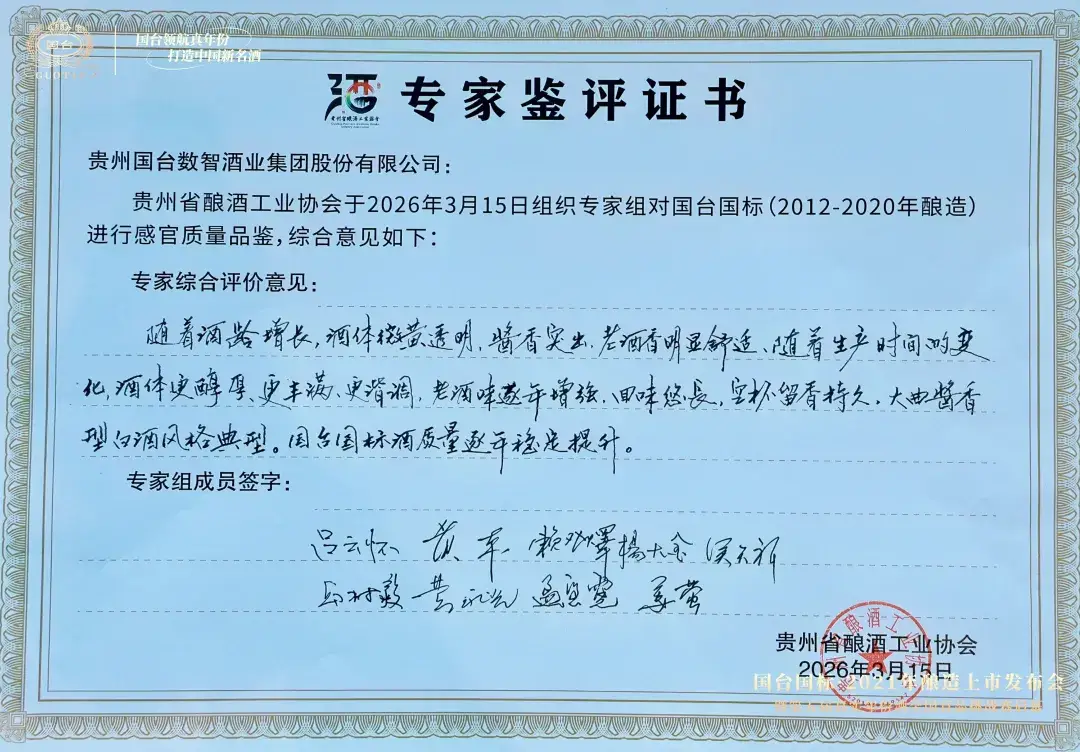 国台
GUOTAI
国台领航真年份
打造中国新名酒
贵州省酿酒工业协会
专家鉴评证书
贵州国台数智酒业集团股份有限公司：
贵州省酿酒工业协会于2026年3月15日组织专家组对国台国标（2012-2020年酿造）
进行感官质量品鉴，综合意见如下：
专家综合评价意见：
随着酒龄增长，酒体微黄透明、醬香突出、老酒香明显舒适、随着生产时间的变
化，酒体更醇厚、更丰满、更谐调，老酒味逐年增强、回味悠長，空杯留香持久、大曲醬香
型白酒风格典型。国台国标酒质量逐年稳定提升。
专家组成员签字：
吕云怀 黄平 楊大金
贵州省酿酒工业协会
2026年3月15日
国台国标·2021年酿造上市发布会